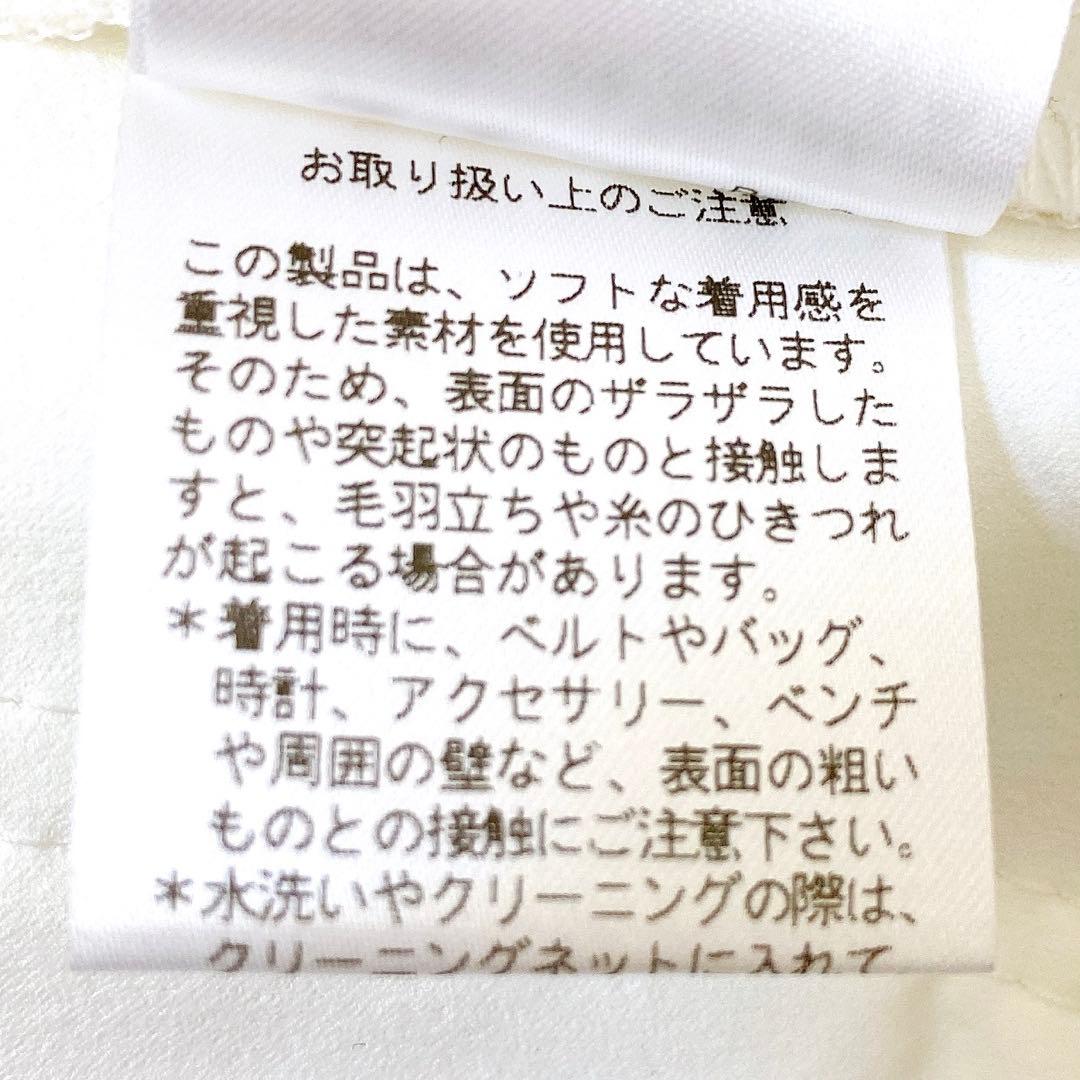 お取り扱い上のご注意
この製品は、ソフトな着用感を
重視した素材を使用しています。
そのため、表面のザラザラした
ものや突起状のものと接触しま
すと、毛羽立ちや糸のひきつれ
が起こる場合があります。
＊着用時に、ベルトやバッグ、
時計、アクセサリー、ベンチ
や周囲の壁など、表面の粗い
ものとの接触にご注意下さい。
＊水洗いやクリーニングの際は、
クリーニングネットに入れて